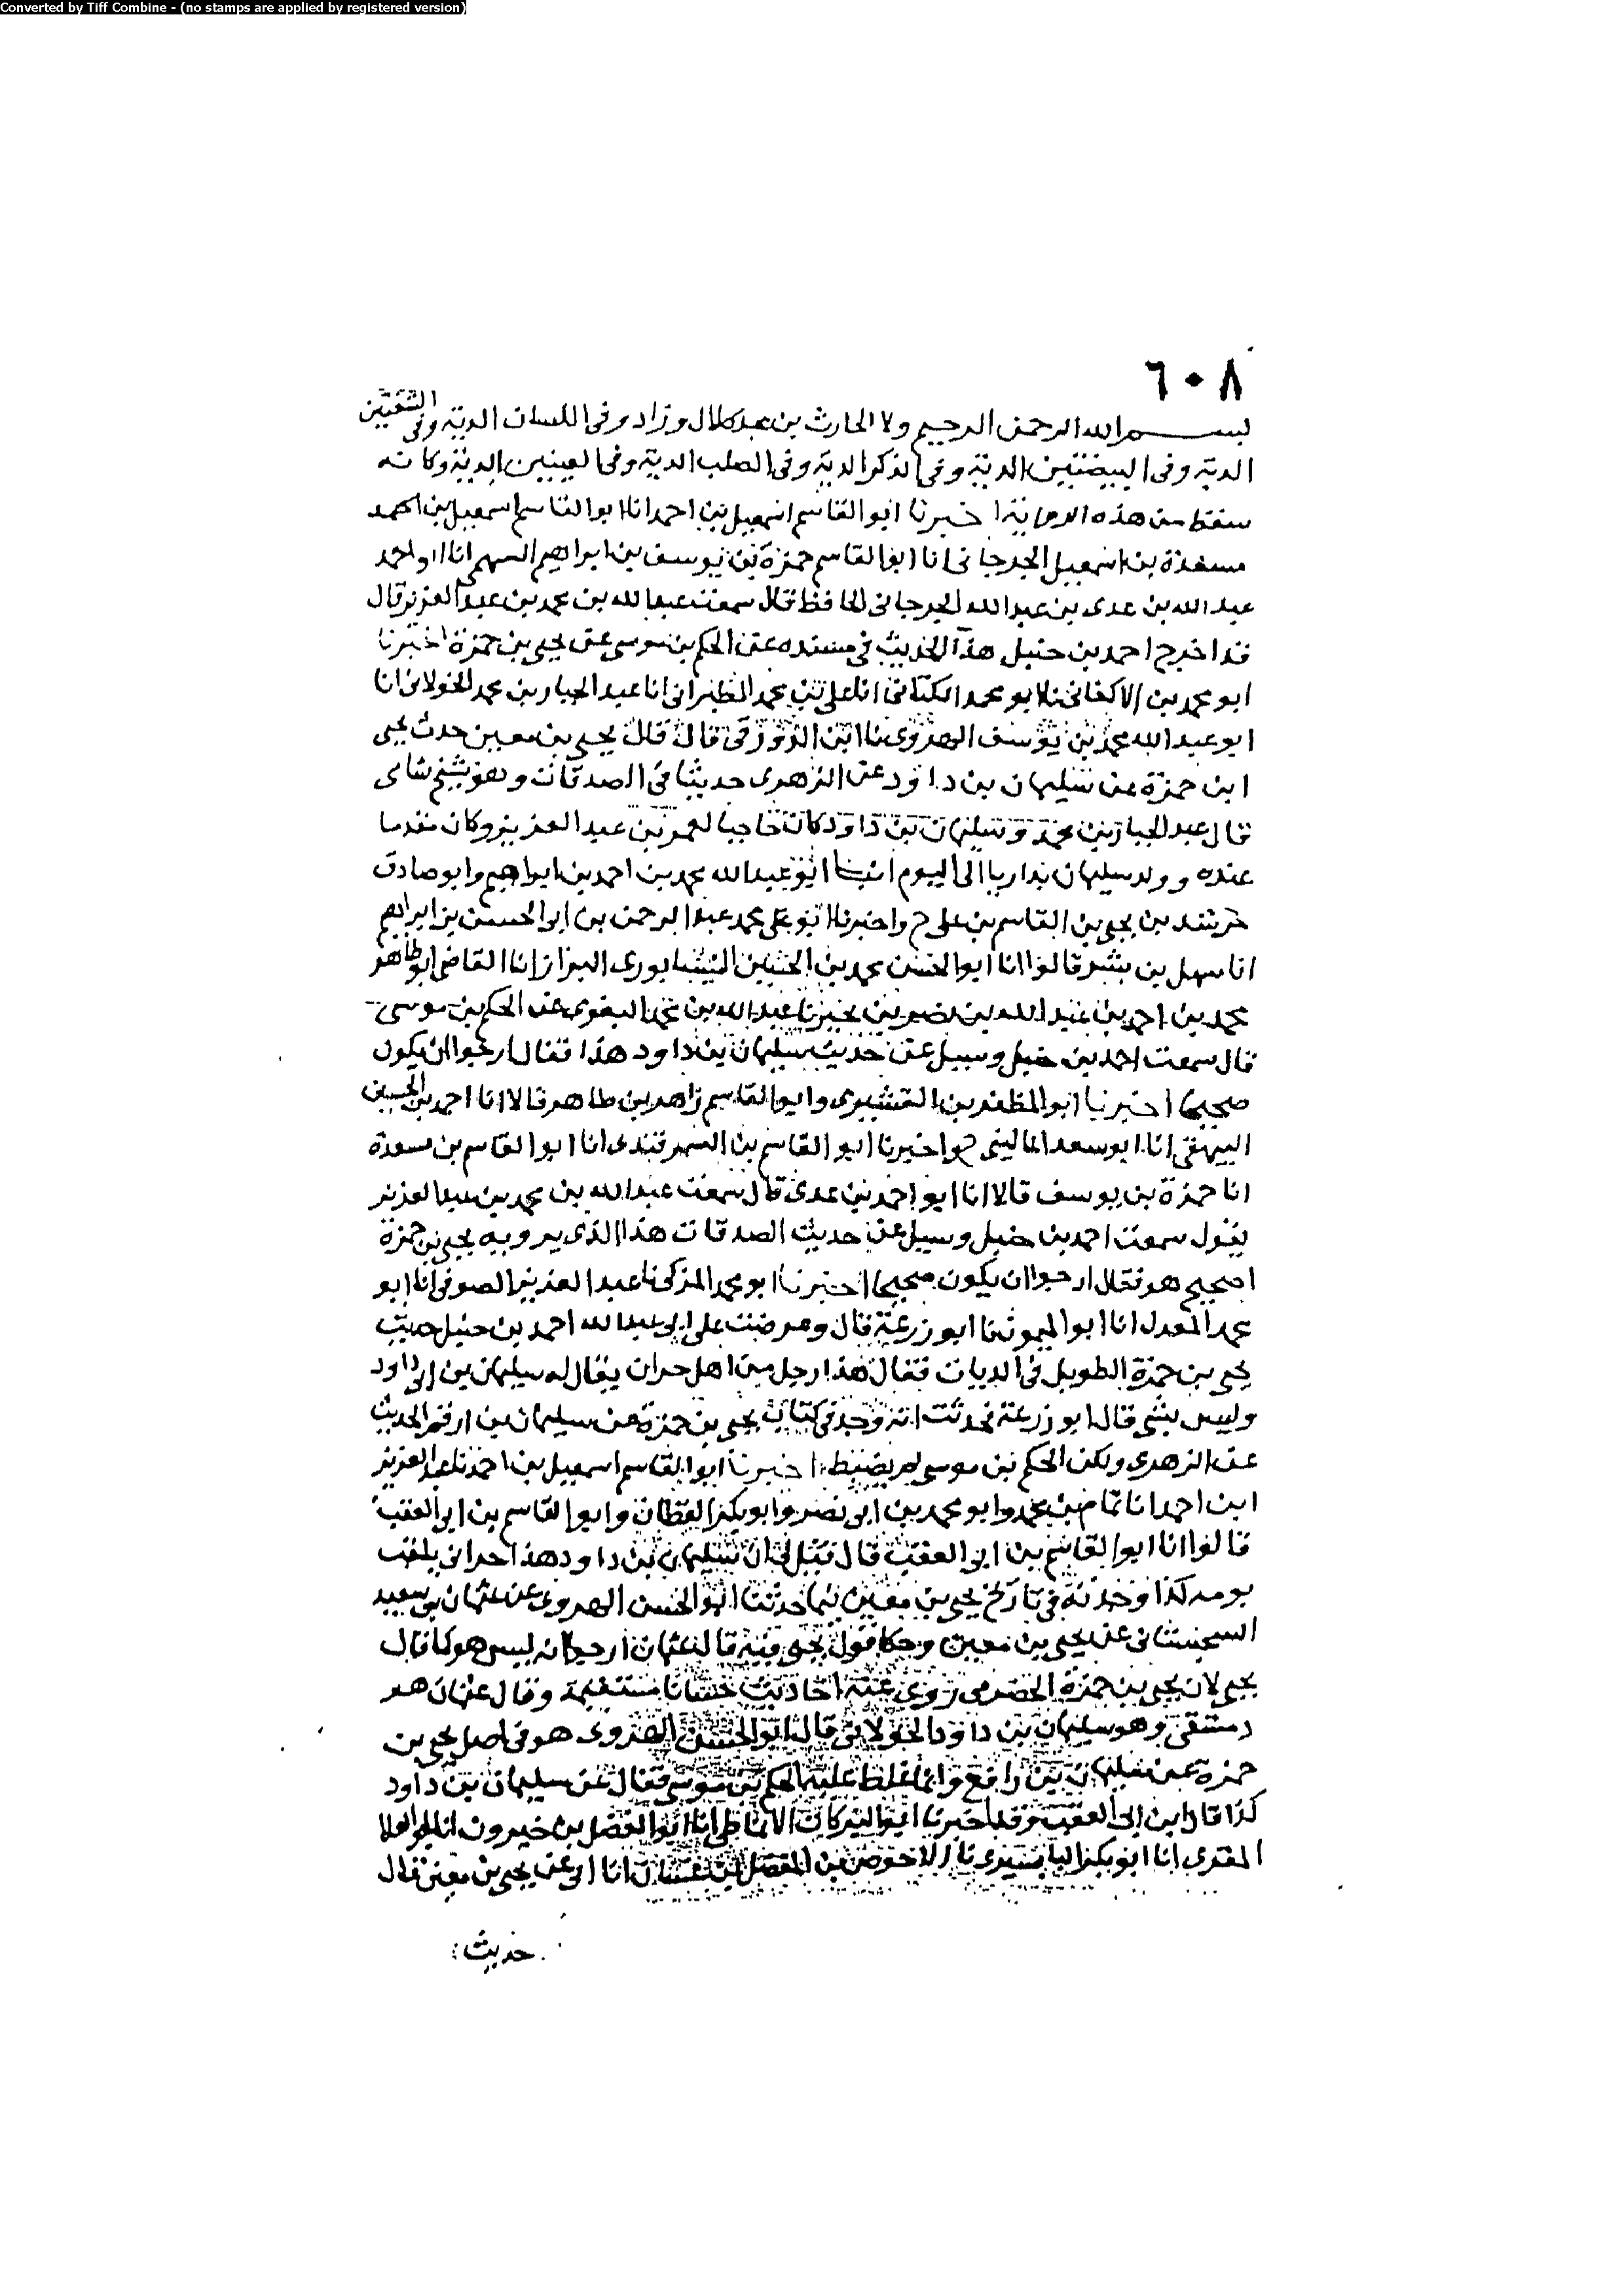 Converted by Tiff Combine - (no stamps are applied by registered version)
٦٠٨
بسم الله الرحمن الرحيم ولا الحارث بن عبد كلال وزاد وفي اللسان الدية وفي الشفتين
الدية وفي البيضتين الدية وفي الذكر الدية وفي الصلب الدية وفي العينين الدية وكانه
سقط من هذه الرواية اخبرنا ابو القاسم اسمعيل بن احمد انا ابو القاسم اسمعيل بن
مسعدة بن اسمعيل الجرجاني انا ابو القاسم حمزة بن يوسف بن ابراهيم السهمي انا ابو احمد
عبد الله بن عدى بن عبد الله الجرجاني الحافظ قال سمعت عبد الله بن محمد بن عبد العزيز قال
قد اخرج احمد بن حنبل هذا الحديث في مسنده عن الحكم بن موسى عن يحيى بن حمزة اخبرنا
ابو محمد بن الاكفاني نا ابو محمد الكتاني انا على بن محمد الطبراني انا عبد الجبار بن محمد الخولاني انا
ابو عبد الله محمد بن يوسف الهروى نا ابن الدورقي قال قال يحيى بن معين حدث يحيى
ابن حمزة عن سليمان بن داود عن الزهرى حديثا في الصدقات وهو شيخ شامى
قال عبد الجبار بن محمد وسليمان بن داود كان حاجبا لعمر بن عبد العزيز وكان مقدما
عنده وولد سليمان بداريا الى اليوم انبانا ابو عبد الله محمد بن احمد بن ابراهيم وابو صادق
مرشد بن يحيى بن القاسم بن على ح واخبرنا ابو محمد عبد الرحمن بن ابى الحسن بن ابراهيم
انا سهل بن بشر قالوا انا ابو الحسن محمد بن الحسين النيسابورى البزاز انا القاضى ابو طاهر
محمد بن احمد بن عبد الله بن نصر بن بجير نا عبد الله بن محمد البغوى عن الحكم بن موسى
قال سمعت احمد بن حنبل وسيل عن حديث سليمان بن داود هذا فقال ارجوا ان يكون
صحيحا اخبرنا ابو المظفر بن القشيرى وابو القاسم زاهر بن طاهر قالا انا احمد بن الحسين
البيهقى انا ابو سعد المالينى ح واخبرنا ابو القاسم بن السمرقندى انا ابو القاسم بن مسعدة
انا حمزة بن يوسف قالا انا ابو احمد بن عدى قال سمعت عبد الله بن محمد بن عبد العزيز
يقول سمعت احمد بن حنبل وسيل عن حديث الصدقات هذا الذى يرويه يحيى بن حمزة
اصحيح هو فقال ارجوا ان يكون صحيحا اخبرنا ابو محمد المزكى نا عبد العزيز الصوفي انا ابو
محمد المعدل انا ابو الميمون نا ابو زرعة قال وعرضت على ابى عبد الله احمد بن حنبل حديث
يحيى بن حمزة الطويل في الديات فقال هذا رجل من اهل حران يقال له سليمان بن ابى داود
وليس بشى قال ابو زرعة فحدثت انه وجد في كتاب يحيى بن حمزة عن سليمان بن ارقم الحديث
عن الزهرى ولكن الحكم بن موسى لم يضبط اخبرنا ابو القاسم اسمعيل بن احمد نا عبد العزيز
ابن احمد انا تمام بن محمد وابو محمد بن ابى نصر وابو بكر القطان وابو القاسم بن ابى العقب
قالوا انا ابو القاسم بن ابى العقب قال قيل لى ان سليمان بن داود هذا حرانى يلقب
بومه كذا وجدته في تاريخ يحيى بن معين فيما حدثنا ابو الحسن الهروى عن عثمان بن سعيد
السجستانى عن يحيى بن معين وحكا قول يحيى فيه قال عثمان ارجو انه ليس هو كما قال
يحيى لان يحيى بن حمزة الحضرمى روى عنه احاديث حسانا مستقيمة وقال عثمان هو
دمشقى وهو سليمان بن داود الخولانى قال ابو الحسن الهروى هو في اصل يحيى بن
حمزة عن سليمان بن وانما غلط عليه الحكم بن موسى فقال عن سليمان بن داود
كذا قال ابن ابى العقب وقد اخبرنا ابو البركات الانماطى انا ابو الفضل بن خيرون انا ابو العلا
المقرى انا ابو بكر البابسيرى نا الاحوص بن المفضل بن غسان انا ابى عن يحيى بن معين قال
حديث